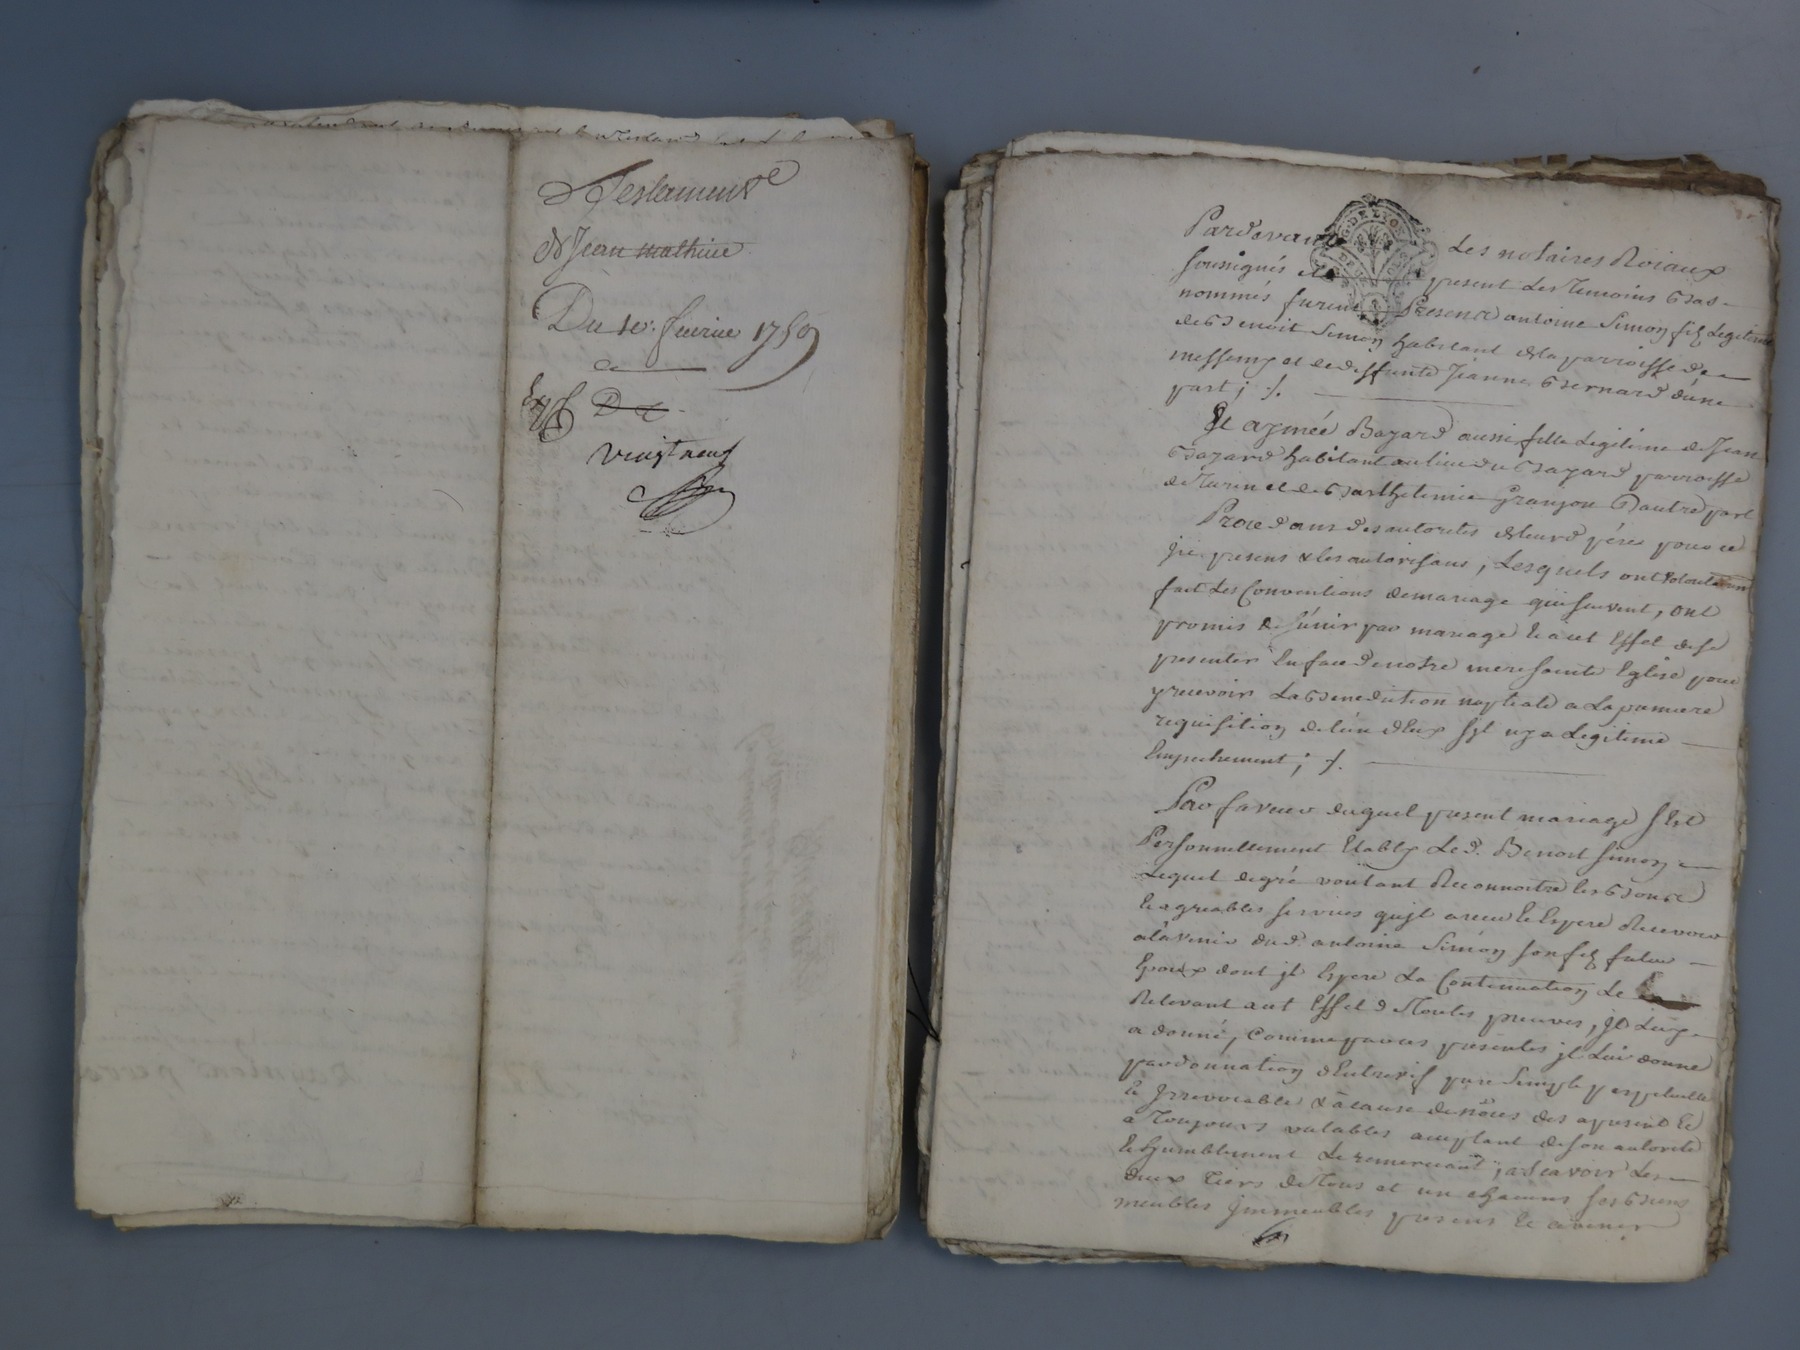 Testament
de Jean mathieu
Du 1er. fevrier 1759
vingt neuf
Pardevant Les notaires Roiaux
soussignés et present Les Temoins bas
nommés furent Presence antoine Simon fils Legitime
de Benoit Simon habitant de la parroisse de
messemy et de deffunte Jeanne Bernard d'une
part ; /.
Et aymée Bayard aussi fille Legitime de Jean
Bayard habitant au lieu du Bayard parroisse
de Turin et de Barthelemie Granjon D'autre part
Procedans des autorites de leurs péres pour ce
jci presens & les autorisans, Lesquels ont volontairement
fait Les Conventions de mariage qui suivent, ont
promis de s'unir par mariage Et a cet Effet de se
presenter En face de notre mere sainte Eglise pour
y recevoir La Benediction nuptiale a La premiere
requisition de l'un d'Eux s'jl n'y a Legitime
Empechement ; /.
Par faveur duquel present mariage s'Est
Personnellement Etably Led. Benoit Simon
Lequel de gré voulant Reconnoitre les Bons
Et agreables services qu'jl a receu Et Espere Recevoir
a l'avenir dud. antoine Simon son fils futur
Epoux dont jl Espere La Continuation Le
Relevant a cet Effet de Toutes preuves, jl Luy
a donné, comme par ces presentes jl Lui donne
par donnation d'Entrevifs pure simple perpetuelle
Et jrrevocable & a cause de nôces des a present Et
a Toujours valables acceptant de son autorité
Et humblement Le remerciant ; a scavoir Les
deux Tiers de Tous et un chacuns ses Biens
meubles jmmeubles presens Et avenir